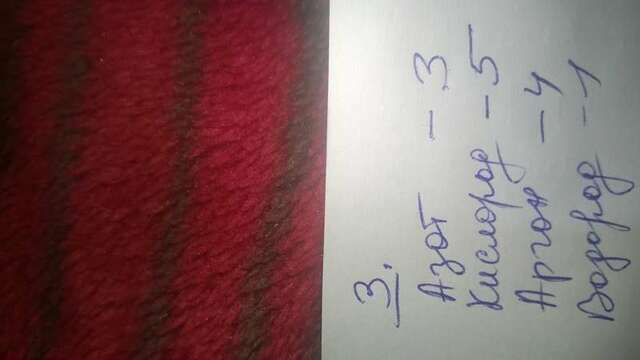 3.
Азот - 3
Кислород - 5
Аргон - 4
Водород - 1